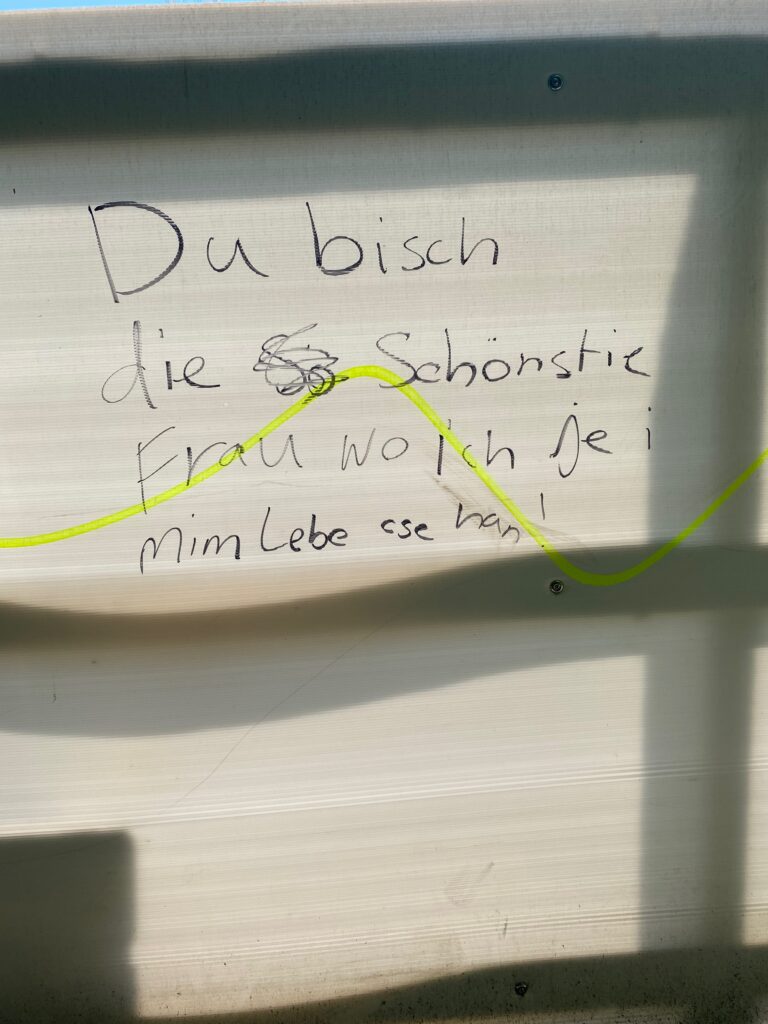 Du bisch
die Schönstie
Frau wo ich je i
mim Lebe gse han!